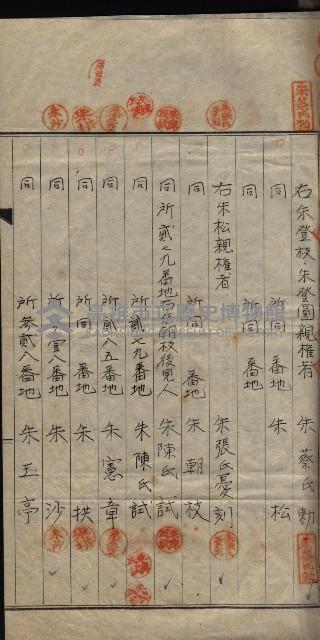 右朱登枝、朱登圓親權者 朱蔡氏勅
同 所同番地 朱松
同 所同番地
右朱松親權者 朱張氏憂刻
同 所同番地 朱朝枝
同所貳七九番地 朝枝後見人 朱陳氏試
同 所貳七九番地 朱陳氏試
同 所貳八五番地 朱憲章
同 所同番地 朱拱
同 所八番地 朱沙
同 所參貳八番地 朱玉亭
高雄市立歷史博物館